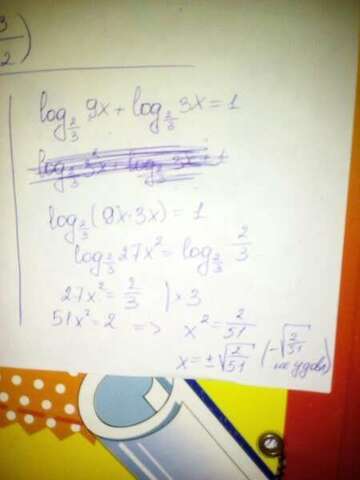 3/2)
log_{2/3} 9x + log_{2/3} 3x = 1
log_{2/3} (9x·3x) = 1
log_{2/3} 27x² = log_{2/3} 2/3
27x² = 2/3 | ×3
51x² = 2 => x² = 2/51
x = ±√(2/51) (-√(2/51) не удовл)